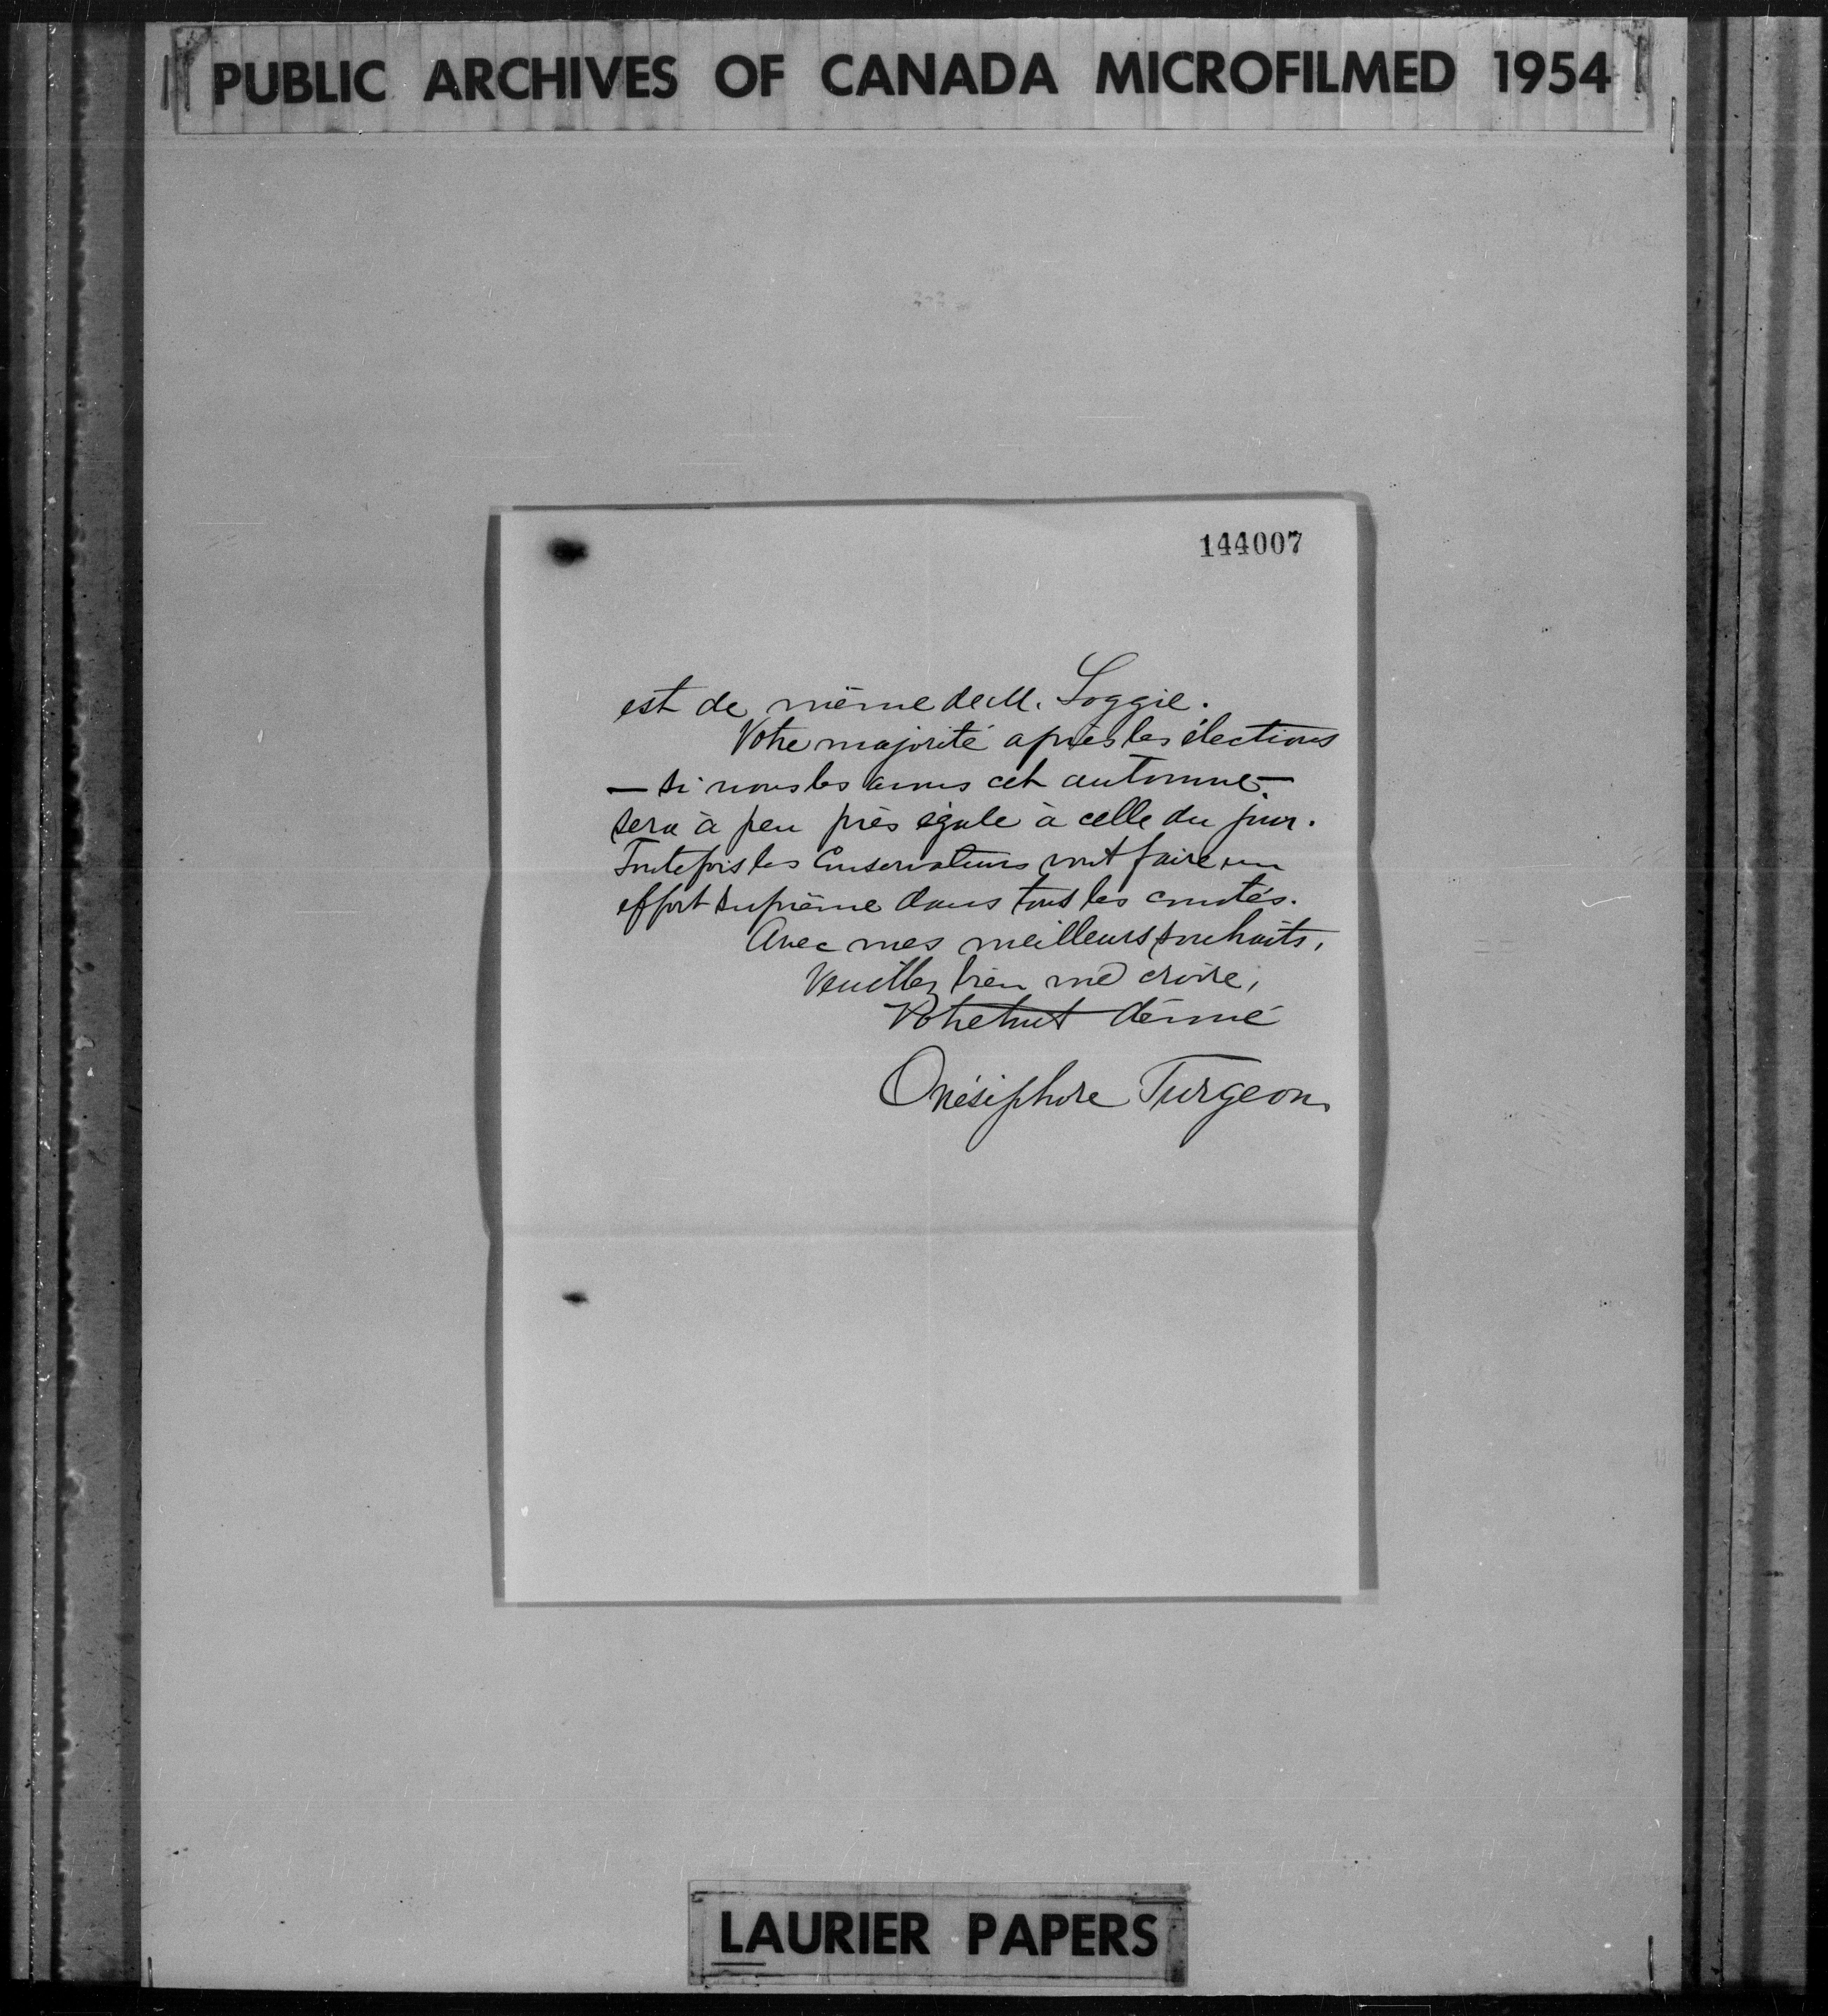 PUBLIC ARCHIVES OF CANADA MICROFILMED 1954
144007
est de même de M. Loggie.
Votre majorité après les élections
— si nous les avons cet automne —
sera à peu près égale à celle du jour.
Toutefois les Conservateurs vont faire un
effort suprême dans tous les comtés.
Avec mes meilleurs souhaits,
Veuillez bien me croire,
Votre tout dévoué
Onésiphore Turgeon
LAURIER PAPERS